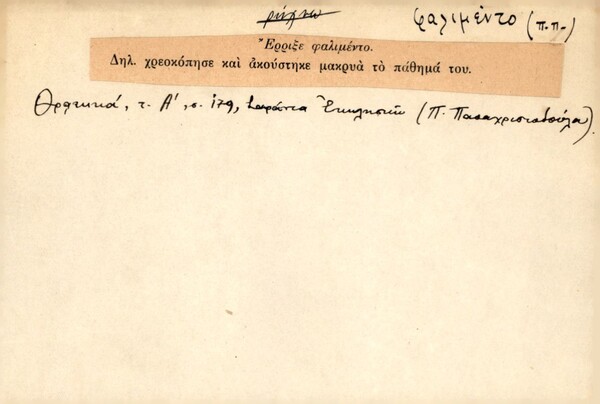 ρίχνω
φαλιμέντο (π.π-)
Ἔρριξε φαλιμέντο.
Δηλ. χρεοκόπησε καὶ ἀκούστηκε μακρυὰ τὸ πάθημά του.
Θρακικά, τ. Α', σ. 179, Σαράντα Ἐκκλησιῶν (Π. Παπαχριστοδούλου)